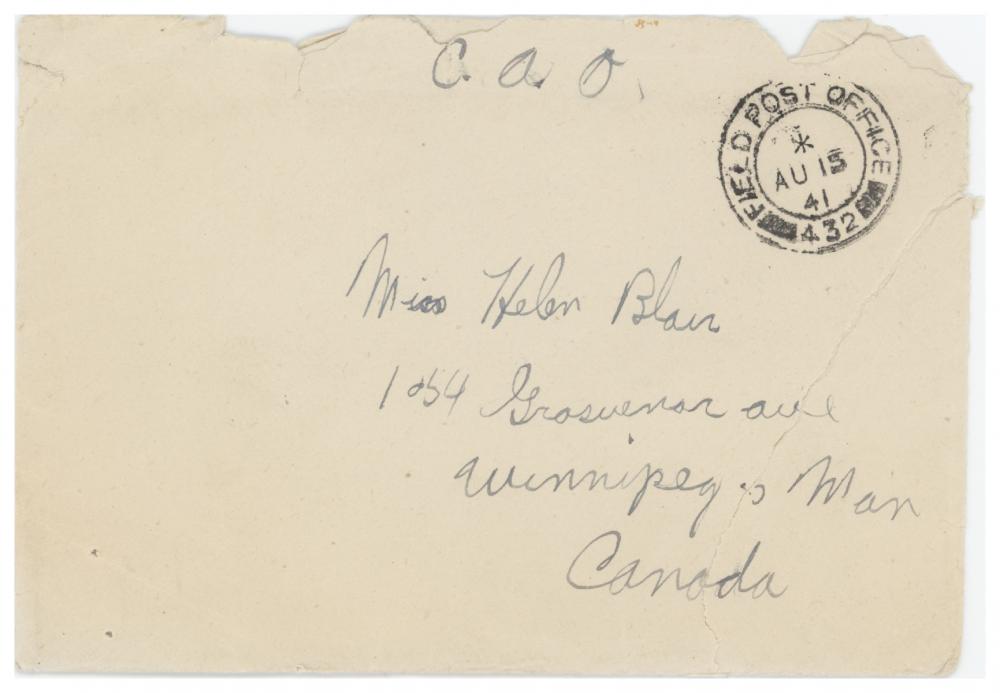 C. A. O.
FIELD POST OFFICE
*
AU 15
41
432
Miss Helen Blair
1054 Grosvenor ave
Winnipeg, Man
Canada